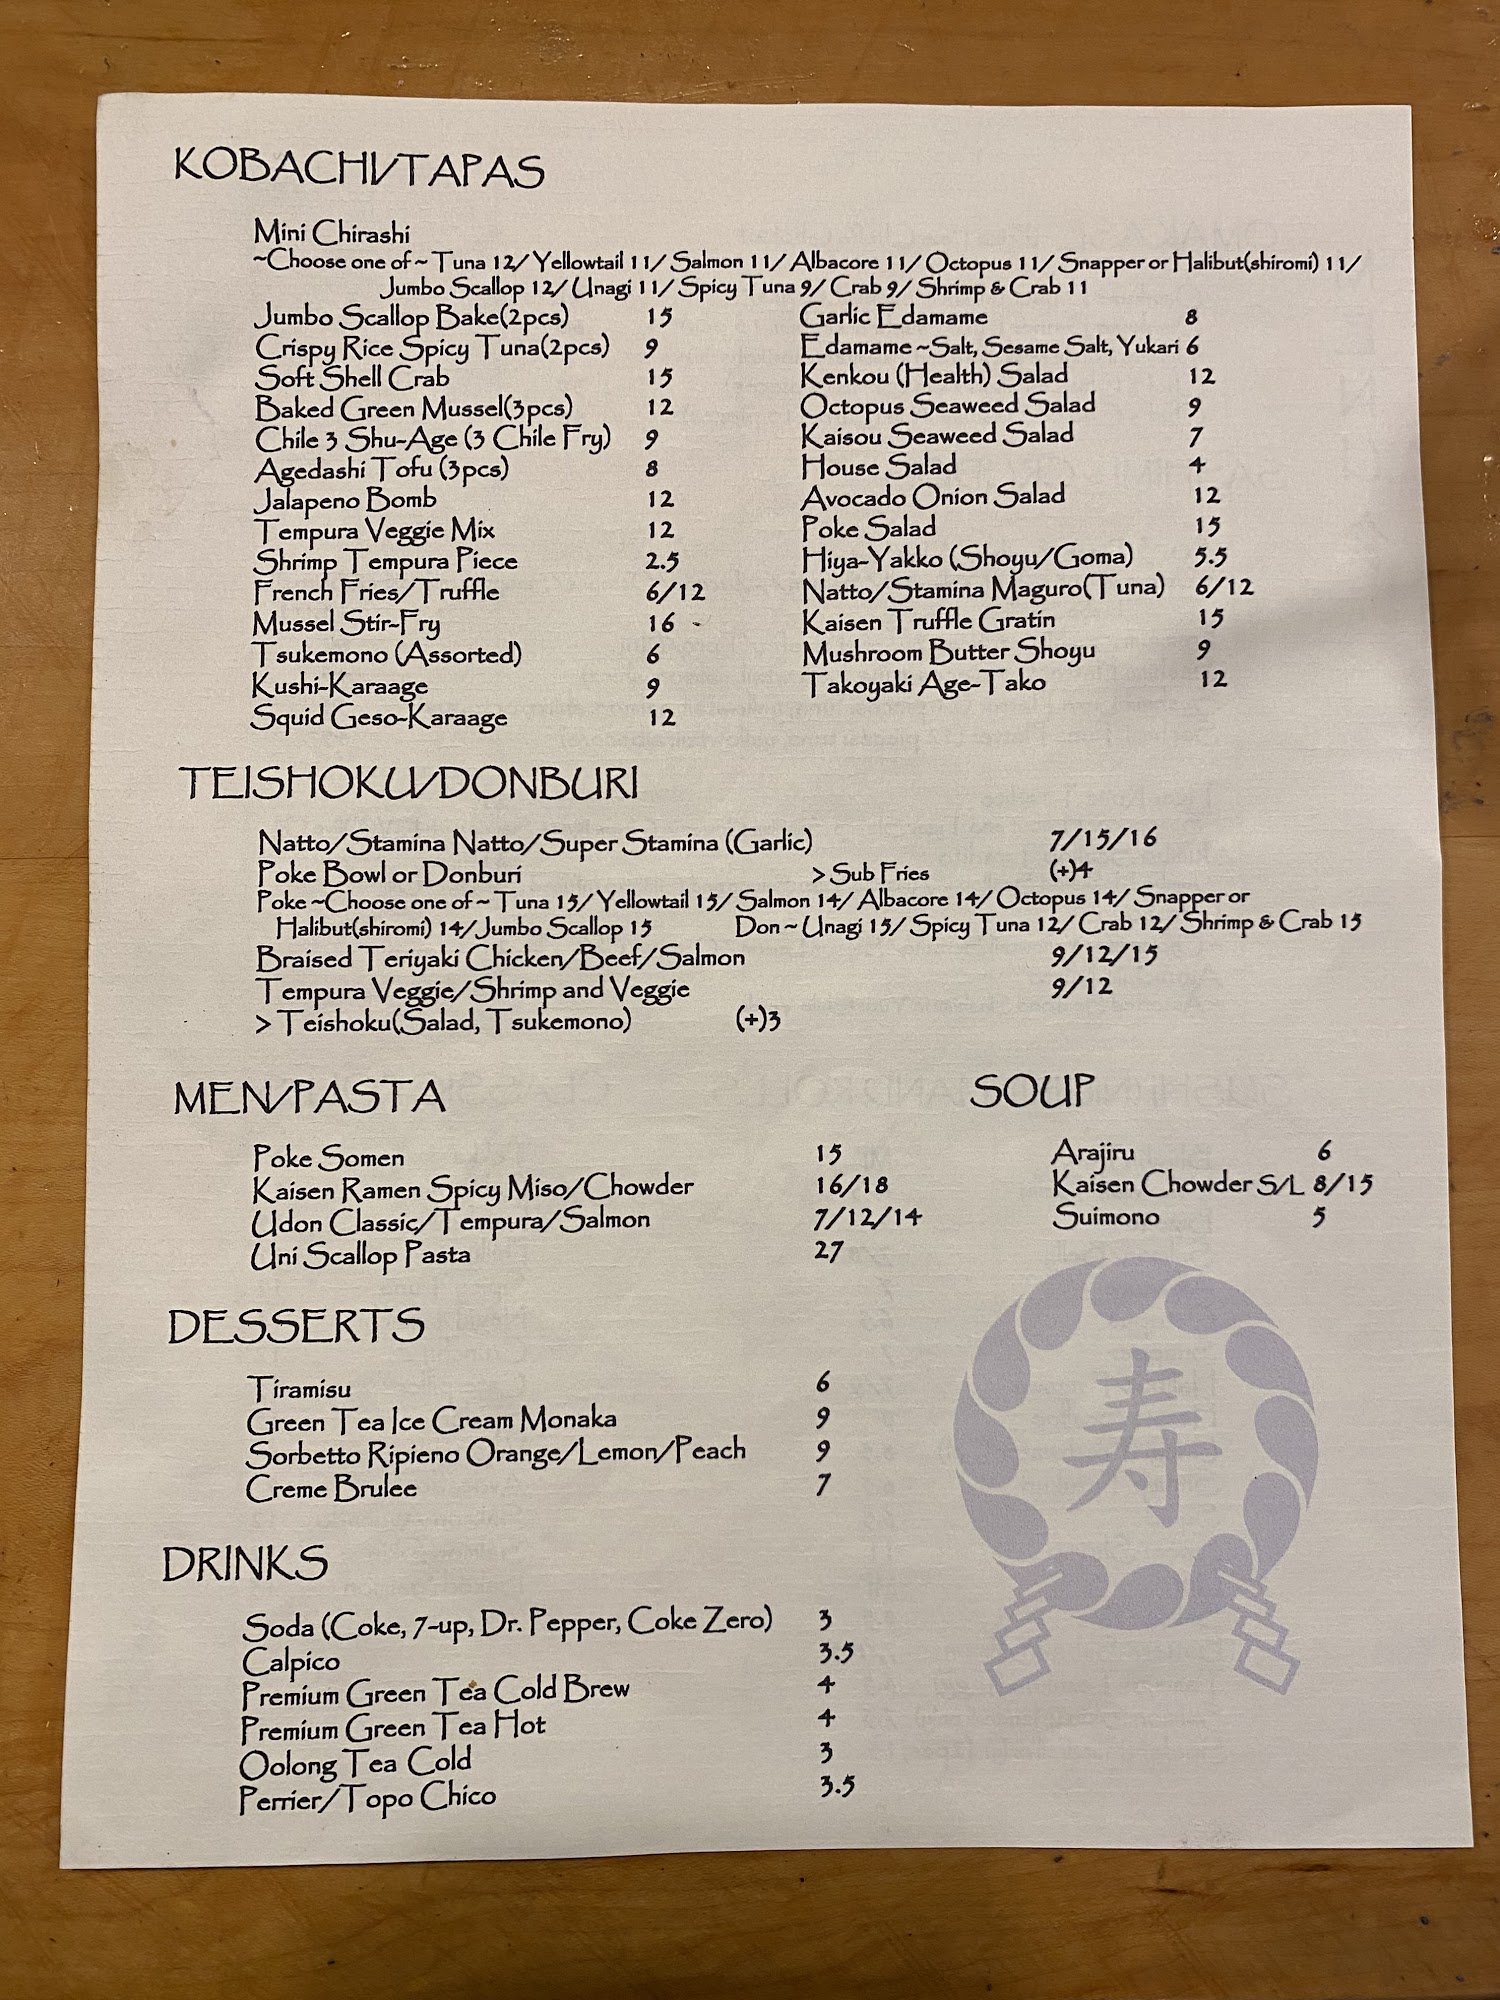 KOBACHI/TAPAS
Mini Chirashi
~Choose one of~ Tuna 12/ Yellowtail 11/ Salmon 11/ Albacore 11/ Octopus 11/ Snapper or Halibut(shiromi) 11/
Jumbo Scallop 12/ Unagi 11/ Spicy Tuna 9/ Crab 9/ Shrimp & Crab 11
Jumbo Scallop Bake(2pcs) 15
Crispy Rice Spicy Tuna(2pcs) 9
Soft Shell Crab 15
Baked Green Mussel(3pcs) 12
Chile 3 Shu-Age (3 Chile Fry) 9
Agedashi Tofu (3pcs) 8
Jalapeno Bomb 12
Tempura Veggie Mix 12
Shrimp Tempura Piece 2.5
French Fries/Truffle 6/12
Mussel Stir-Fry 16
Tsukemono (Assorted) 6
Kushi-Karaage 9
Squid Geso-Karaage 12
Garlic Edamame 8
Edamame ~Salt, Sesame Salt, Yukari 6
Kenkou (Health) Salad 12
Octopus Seaweed Salad 9
Kaisou Seaweed Salad 7
House Salad 4
Avocado Onion Salad 12
Poke Salad 15
Hiya-Yakko (Shoyu/Goma) 5.5
Natto/Stamina Maguro(Tuna) 6/12
Kaisen Truffle Gratin 15
Mushroom Butter Shoyu 9
Takoyaki Age-Tako 12
TEISHOKU/DONBURI
Natto/Stamina Natto/Super Stamina (Garlic) 7/15/16
Poke Bowl or Donburi > Sub Fries (+)4
Poke ~Choose one of~ Tuna 15/ Yellowtail 15/ Salmon 14/ Albacore 14/ Octopus 14/ Snapper or
Halibut(shiromi) 14/ Jumbo Scallop 15 Don ~ Unagi 15/ Spicy Tuna 12/ Crab 12/ Shrimp & Crab 15
Braised Teriyaki Chicken/Beef/Salmon 9/12/15
Tempura Veggie/Shrimp and Veggie 9/12
> Teishoku(Salad, Tsukemono) (+)3
MEN/PASTA
Poke Somen 15
Kaisen Ramen Spicy Miso/Chowder 16/18
Udon Classic/Tempura/Salmon 7/12/14
Uni Scallop Pasta 27
SOUP
Arajiru 6
Kaisen Chowder S/L 8/15
Suimono 5
DESSERTS
Tiramisu 6
Green Tea Ice Cream Monaka 9
Sorbetto Ripieno Orange/Lemon/Peach 9
Creme Brulee 7
寿
DRINKS
Soda (Coke, 7-up, Dr. Pepper, Coke Zero) 3
Calpico 3.5
Premium Green Tea Cold Brew 4
Premium Green Tea Hot 4
Oolong Tea Cold 3
Perrier/Topo Chico 3.5